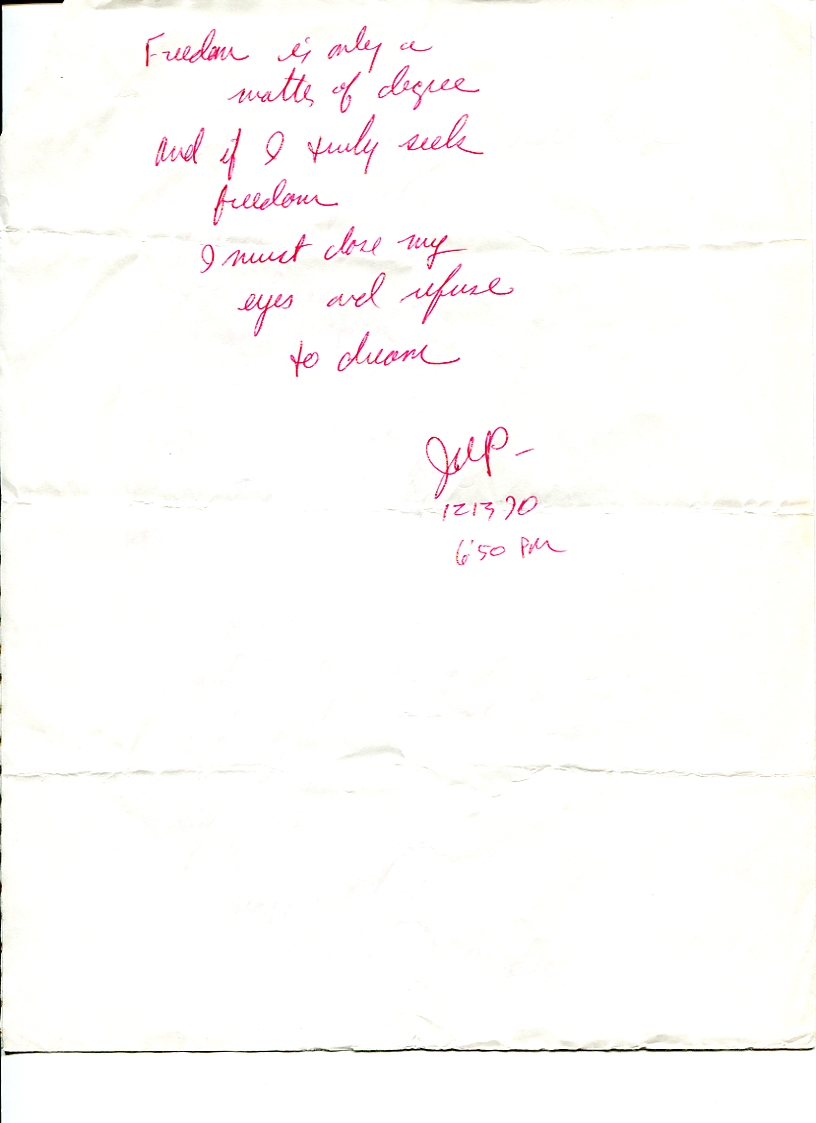 Freedom is only a
matter of degree
and if I truly seek
freedom
I must close my
eyes and refuse
to dream
12 13 70
6:50 PM